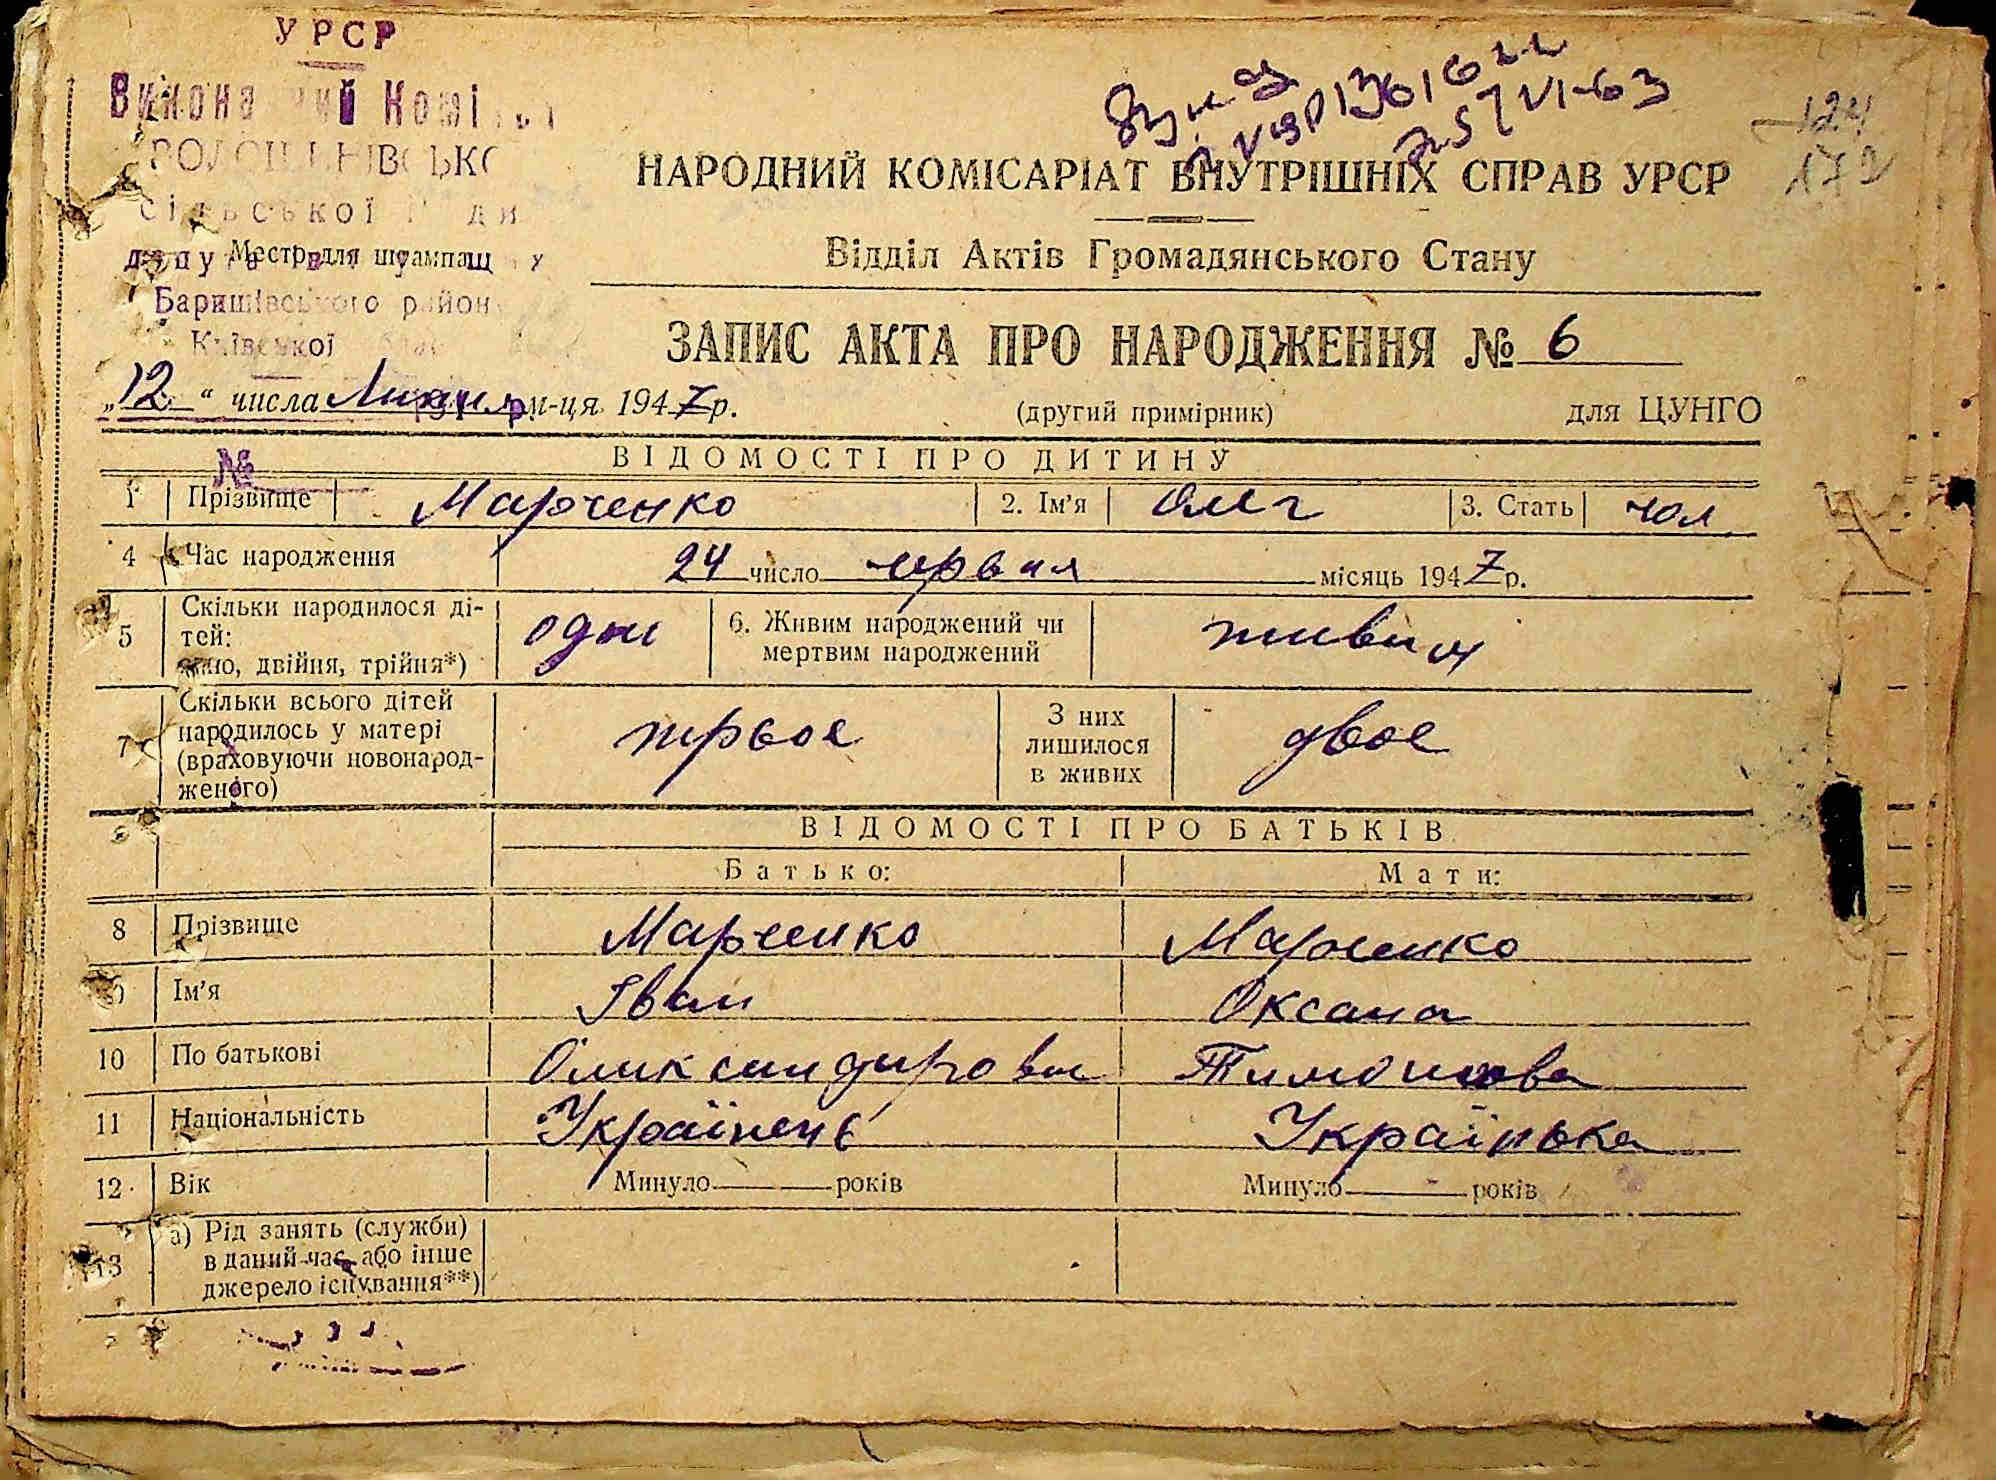 УРСР
Виконавчий Комітет
ВОЛОШИНІВСЬКО
сільської Ради
депутатів трудящих
Место для штампа
Баришівського району
Київської
124
172
VI-63
НАРОДНИЙ КОМІСАРІАТ ВНУТРІШНІХ СПРАВ УРСР
Відділ Актів Громадянського Стану
ЗАПИС АКТА ПРО НАРОДЖЕННЯ № 6
„12“ числа Липня м-ця 1947 р. (другий примірник) для ЦУНГО
№
ВІДОМОСТІ ПРО ДИТИНУ
1 Прізвище Марченко 2. Ім'я Олег 3. Стать чол
4 Час народження 24 число червня місяць 1947 р.
5 Скільки народилося ді-
тей:
одно, двійня, трійня*) одне 6. Живим народжений чи
мертвим народжений живим
7 Скільки всього дітей
народилось у матері
(враховуючи новонарод-
женого) трьоє З них
лишилося
в живих двоє
ВІДОМОСТІ ПРО БАТЬКІВ
Батько: Мати:
8 Прізвище Марченко Марченко
9 Ім'я Іван Оксана
10 По батькові Олександрович
11 Національність Українець Українка
12 Вік Минуло роківМинуло років
13 а) Рід занять (служби)
в даний час або інше
джерело існування**)